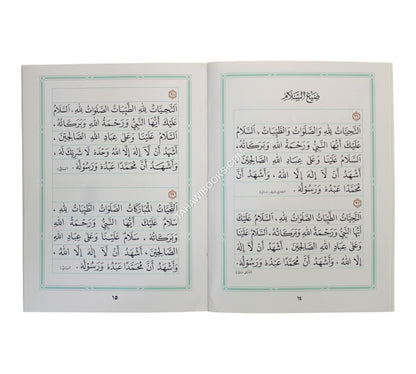 صيغ السلام
التحيات لله والصلوات والطيبات ، السلام
عليك أيها النبي ورحمة الله وبركاته ،
السلام علينا وعلى عباد الله الصالحين ،
أشهد أن لا إله إلا الله ، وأشهد أن
محمدا عبده ورسوله .
التحيات الطيبات الصلوات لله ، السلام عليك
أيها النبي ورحمة الله وبركاته ، السلام علينا
وعلى عباد الله الصالحين ، أشهد أن لا
إله إلا الله ، وأن محمدا عبده ورسوله .
١٤
التحيات لله الطيبات الصلوات لله ، السلام
عليك أيها النبي ورحمة الله وبركاته ،
السلام علينا وعلى عباد الله الصالحين ،
أشهد أن لا إله إلا الله وحده لا شريك له ،
وأشهد أن محمدا عبده ورسوله .
التحيات المباركات الصلوات الطيبات لله ،
سلام عليك أيها النبي ورحمة الله
وبركاته ، سلام علينا وعلى عباد الله
الصالحين ، أشهد أن لا إله إلا الله ،
وأشهد أن محمدا عبده ورسوله .
١٥